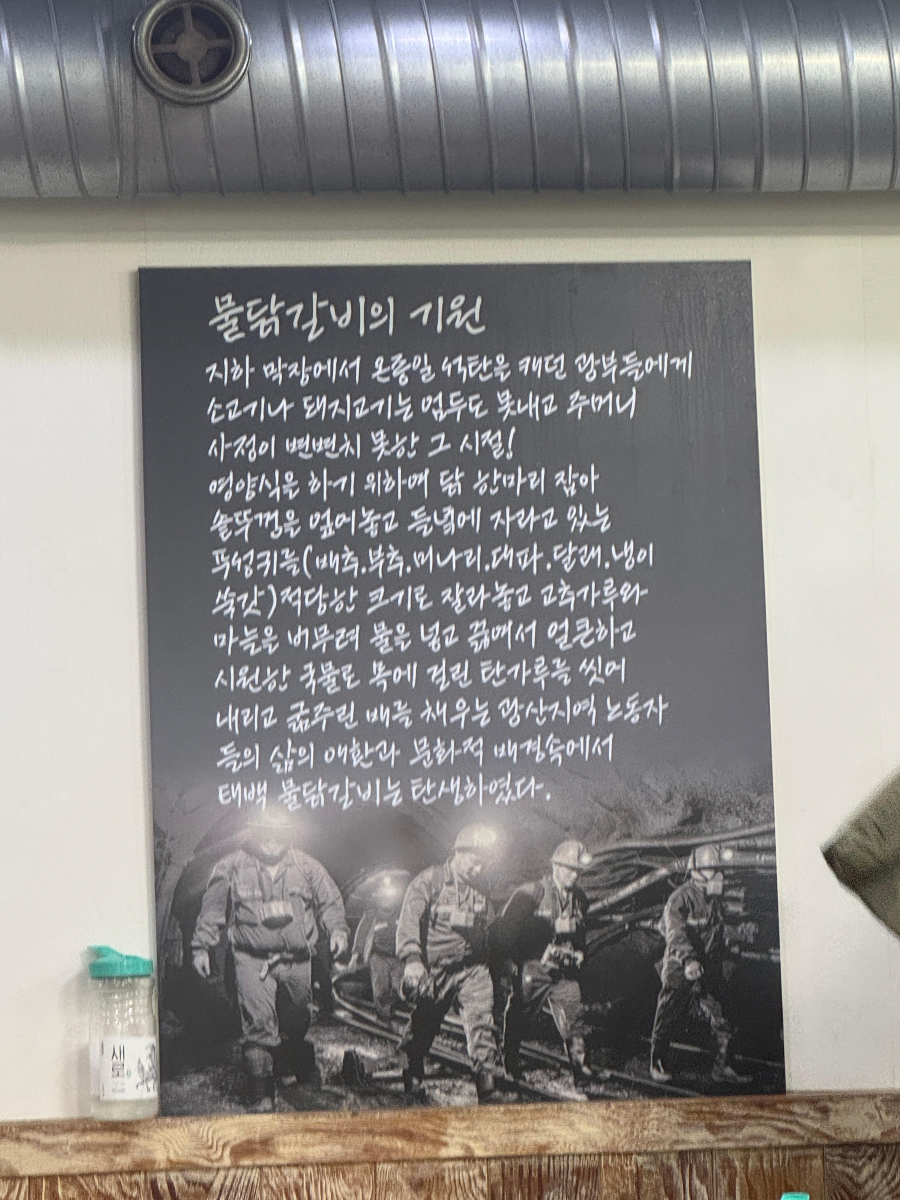 물닭갈비의 기원
지하 막장에서 온종일 석탄을 캐던 광부들에게
소고기나 돼지고기는 엄두도 못내고 주머니
사정이 변변치 못한 그 시절!
영양식을 하기 위하여 닭 한마리 잡아
솥뚜껑을 엎어놓고 들녘에 자라고 있는
푸성귀를(배추.부추.미나리.대파.달래.냉이
쑥갓)적당한 크기로 잘라놓고 고추가루와
마늘을 버무려 물을 넣고 끓여서 얼큰하고
시원한 국물로 목에 걸린 탄가루를 씻어
내리고 굶주린 배를 채우는 광산지역 노동자
들의 삶의 애환과 문화적 배경속에서
태백 물닭갈비는 탄생하였다.
새로